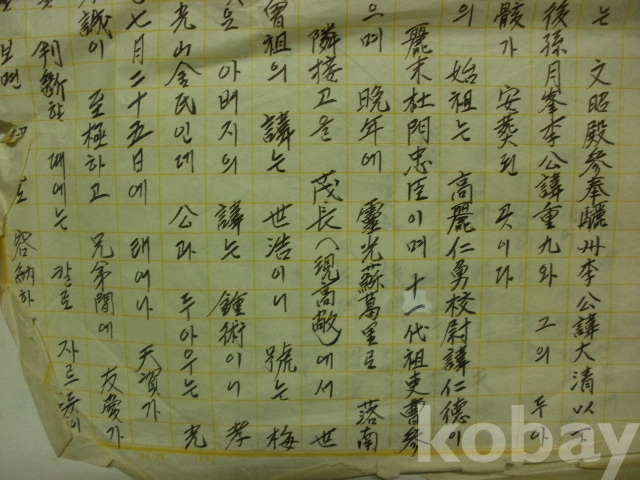 는 文昭殿參奉驪州李公諱大淸以下
後孫月峯李公諱重九와 그의 두아
骸가 安葬된 곳이다
의 始祖는 高麗仁勇校尉諱仁德이
麗末杜門忠臣이며 十一代祖吏曹參
으며 晩年에 靈光蘇葛里로 落南
隣接고을 茂長(現高敞)에서 世
曾祖의 諱는 世浩이니 號는 梅
은 아버지의 諱는 鍾術이니 孝
光山金氏인데 公과 두아우는 光
七月二十五日에 태어나 天質가
誠이 至極하고 兄弟間에 友愛가
判斷할 때에는 칼로 자르듯이
보면 도 容納하
kobay